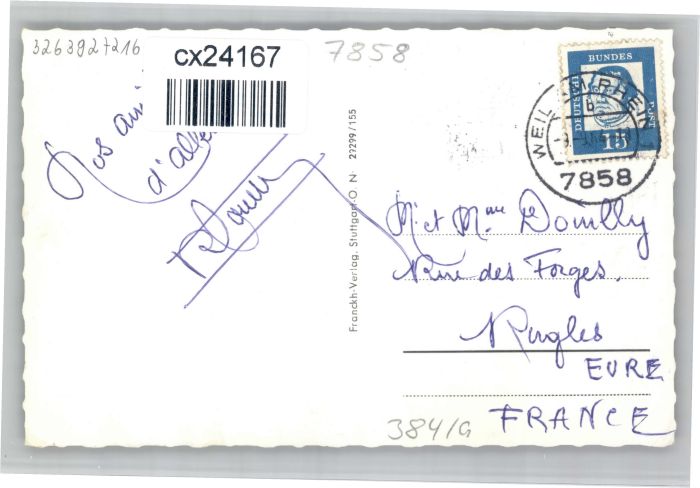 3263927216
cx24167
7858
Nos ami
d'alle
DEUTSCHE
BUNDES
POST
15
WEIL AM RHEIN
b
7858
Franckh-Verlag, Stuttgart-O. N 29299/155
M. et Mme De Domilly
Rue des Forges.
Rugles
EURE
FRANCE
384/G